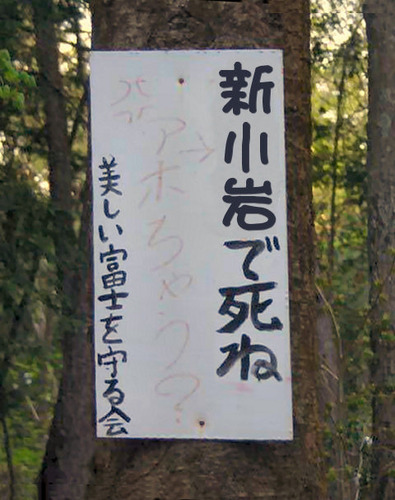 新小岩で死ね
アホちゃう?
美しい富士を守る会